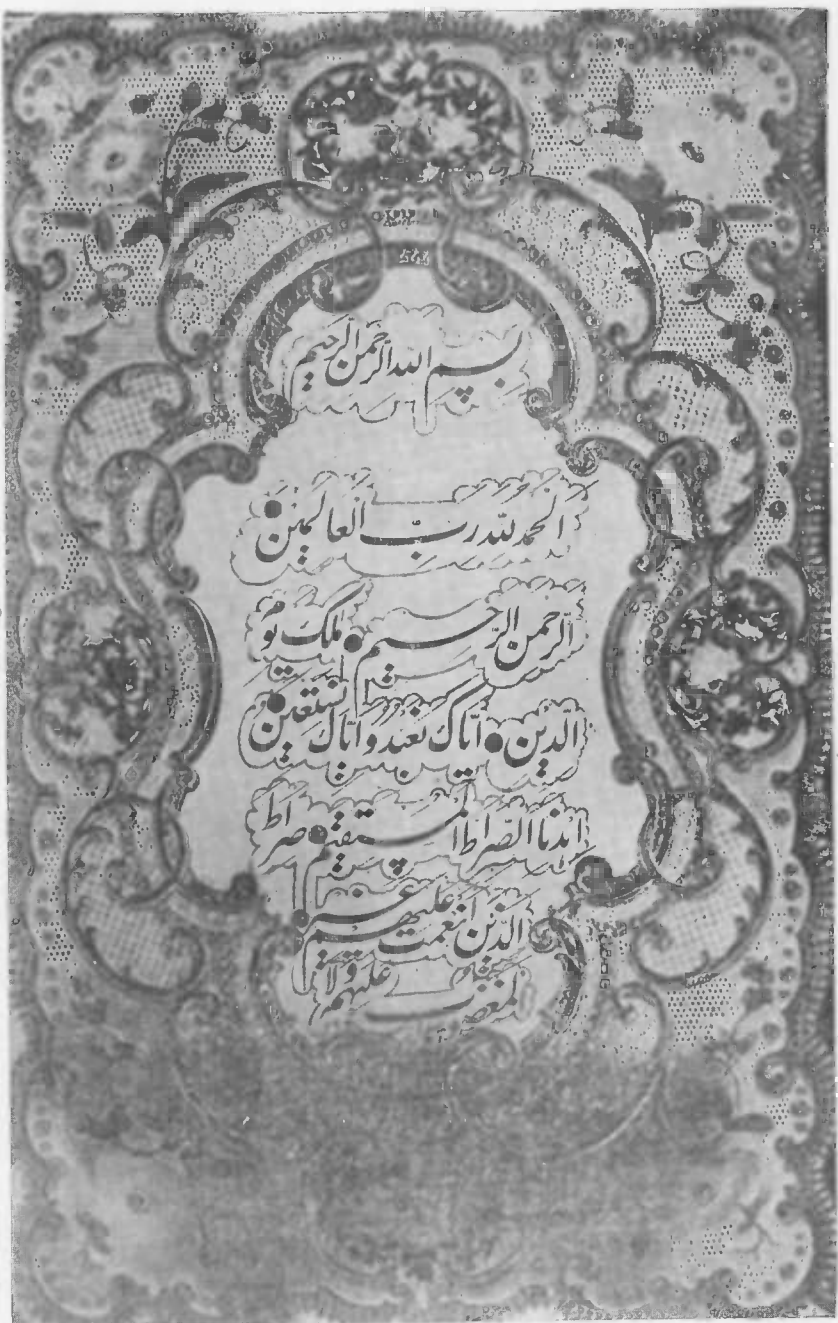 بسم الله الرحمن الرحيم
الحمد لله ربّ العالمين
الرّحمن الرّحيم ملك يوم
الدّين ايّاك نعبد و ايّاك نستعين
اهدنا الصّراط المستقيم صراط
الّذين انعمت عليهم غير
المغضوب عليهم ولا